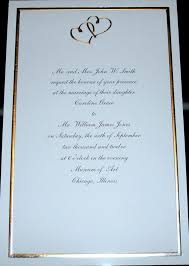 Mr. and Mrs. John W. Smith
request the honour of your presence
at the marriage of their daughter
Caroline Grace
to
Mr. William James Jones
on Saturday, the sixth of September
two thousand and twelve
at 6 o'clock in the evening
Museum of Art
Chicago, Illinois